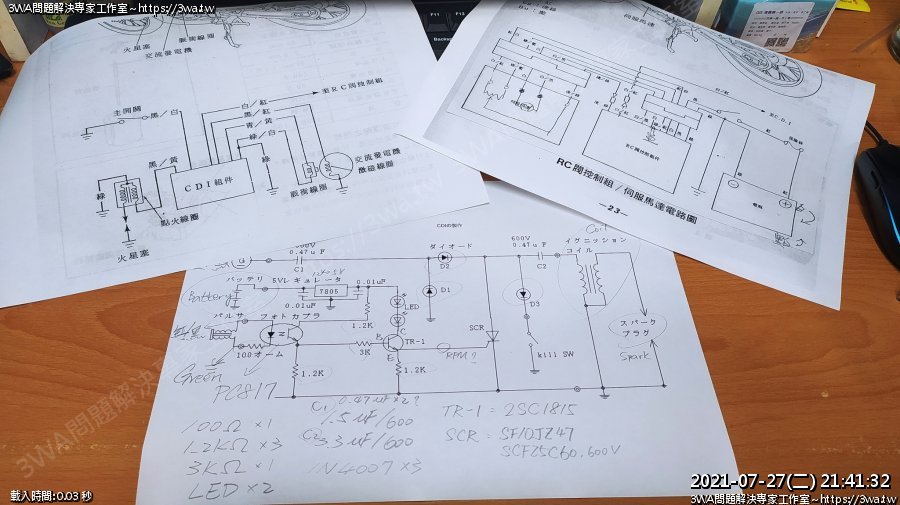 3WA問題解決專家工作室~https://3wa.tw
火星塞
脈衝線圈
交流發電機
主開關
黑/白
白/紅
至RC閥控制組
黑/紅
青/黃
綠/白
黑/黃
綠
綠
CDI組件
交流發電機
激磁線圈
脈衝線圈
點火線圈
火星塞
F11
F12
伺服馬達
至C.D.I
RC閥控制組件
電瓶
RC閥控制組/伺服馬達電路圖
—23—
CDIの製作
0.47uF
C1
ダイオード
D2
600V
0.47uF
C2
Coil
イグニッション
コイル
バッテリ
5Vレギュレータ
7805
0.01uF
0.01uF
Battery
LED
D1
D3
パルサ
フォトカプラ
1.2K
SCR
スパーク
プラグ
Spark
100オーム
3K
TR-1
C
E
RPM?
kill SW
Green
1.2K
1.2K
PC817
C1 0.47uF×2?
1.5uF/600
C2 3.3uF/600
1N4007×3
100Ω×1
1.2KΩ×3
3KΩ×1
LED×2
TR-1 = 2SC1815
SCR = SF10JZ47
SCF25C60.600V
2021-07-27(二) 21:41:32
載入時間:0.03 秒
3WA問題解決專家工作室~https://3wa.tw